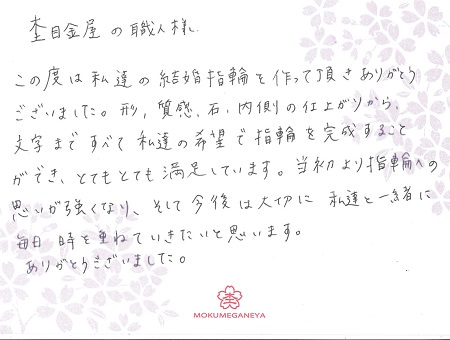 杢目金屋の職人様
この度は私達の結婚指輪を作って頂きありがとう
ございました。形、質感、石、内側の仕上がりから、
文字まですべて私達の希望で指輪を完成すること
ができ、とてもとても満足しています。当初より指輪への
思いが強くなり、そして今後は大切に私達と一緒に
毎日時を重ねていきたいと思います。
ありがとうございました。
MOKUMEGANEYA